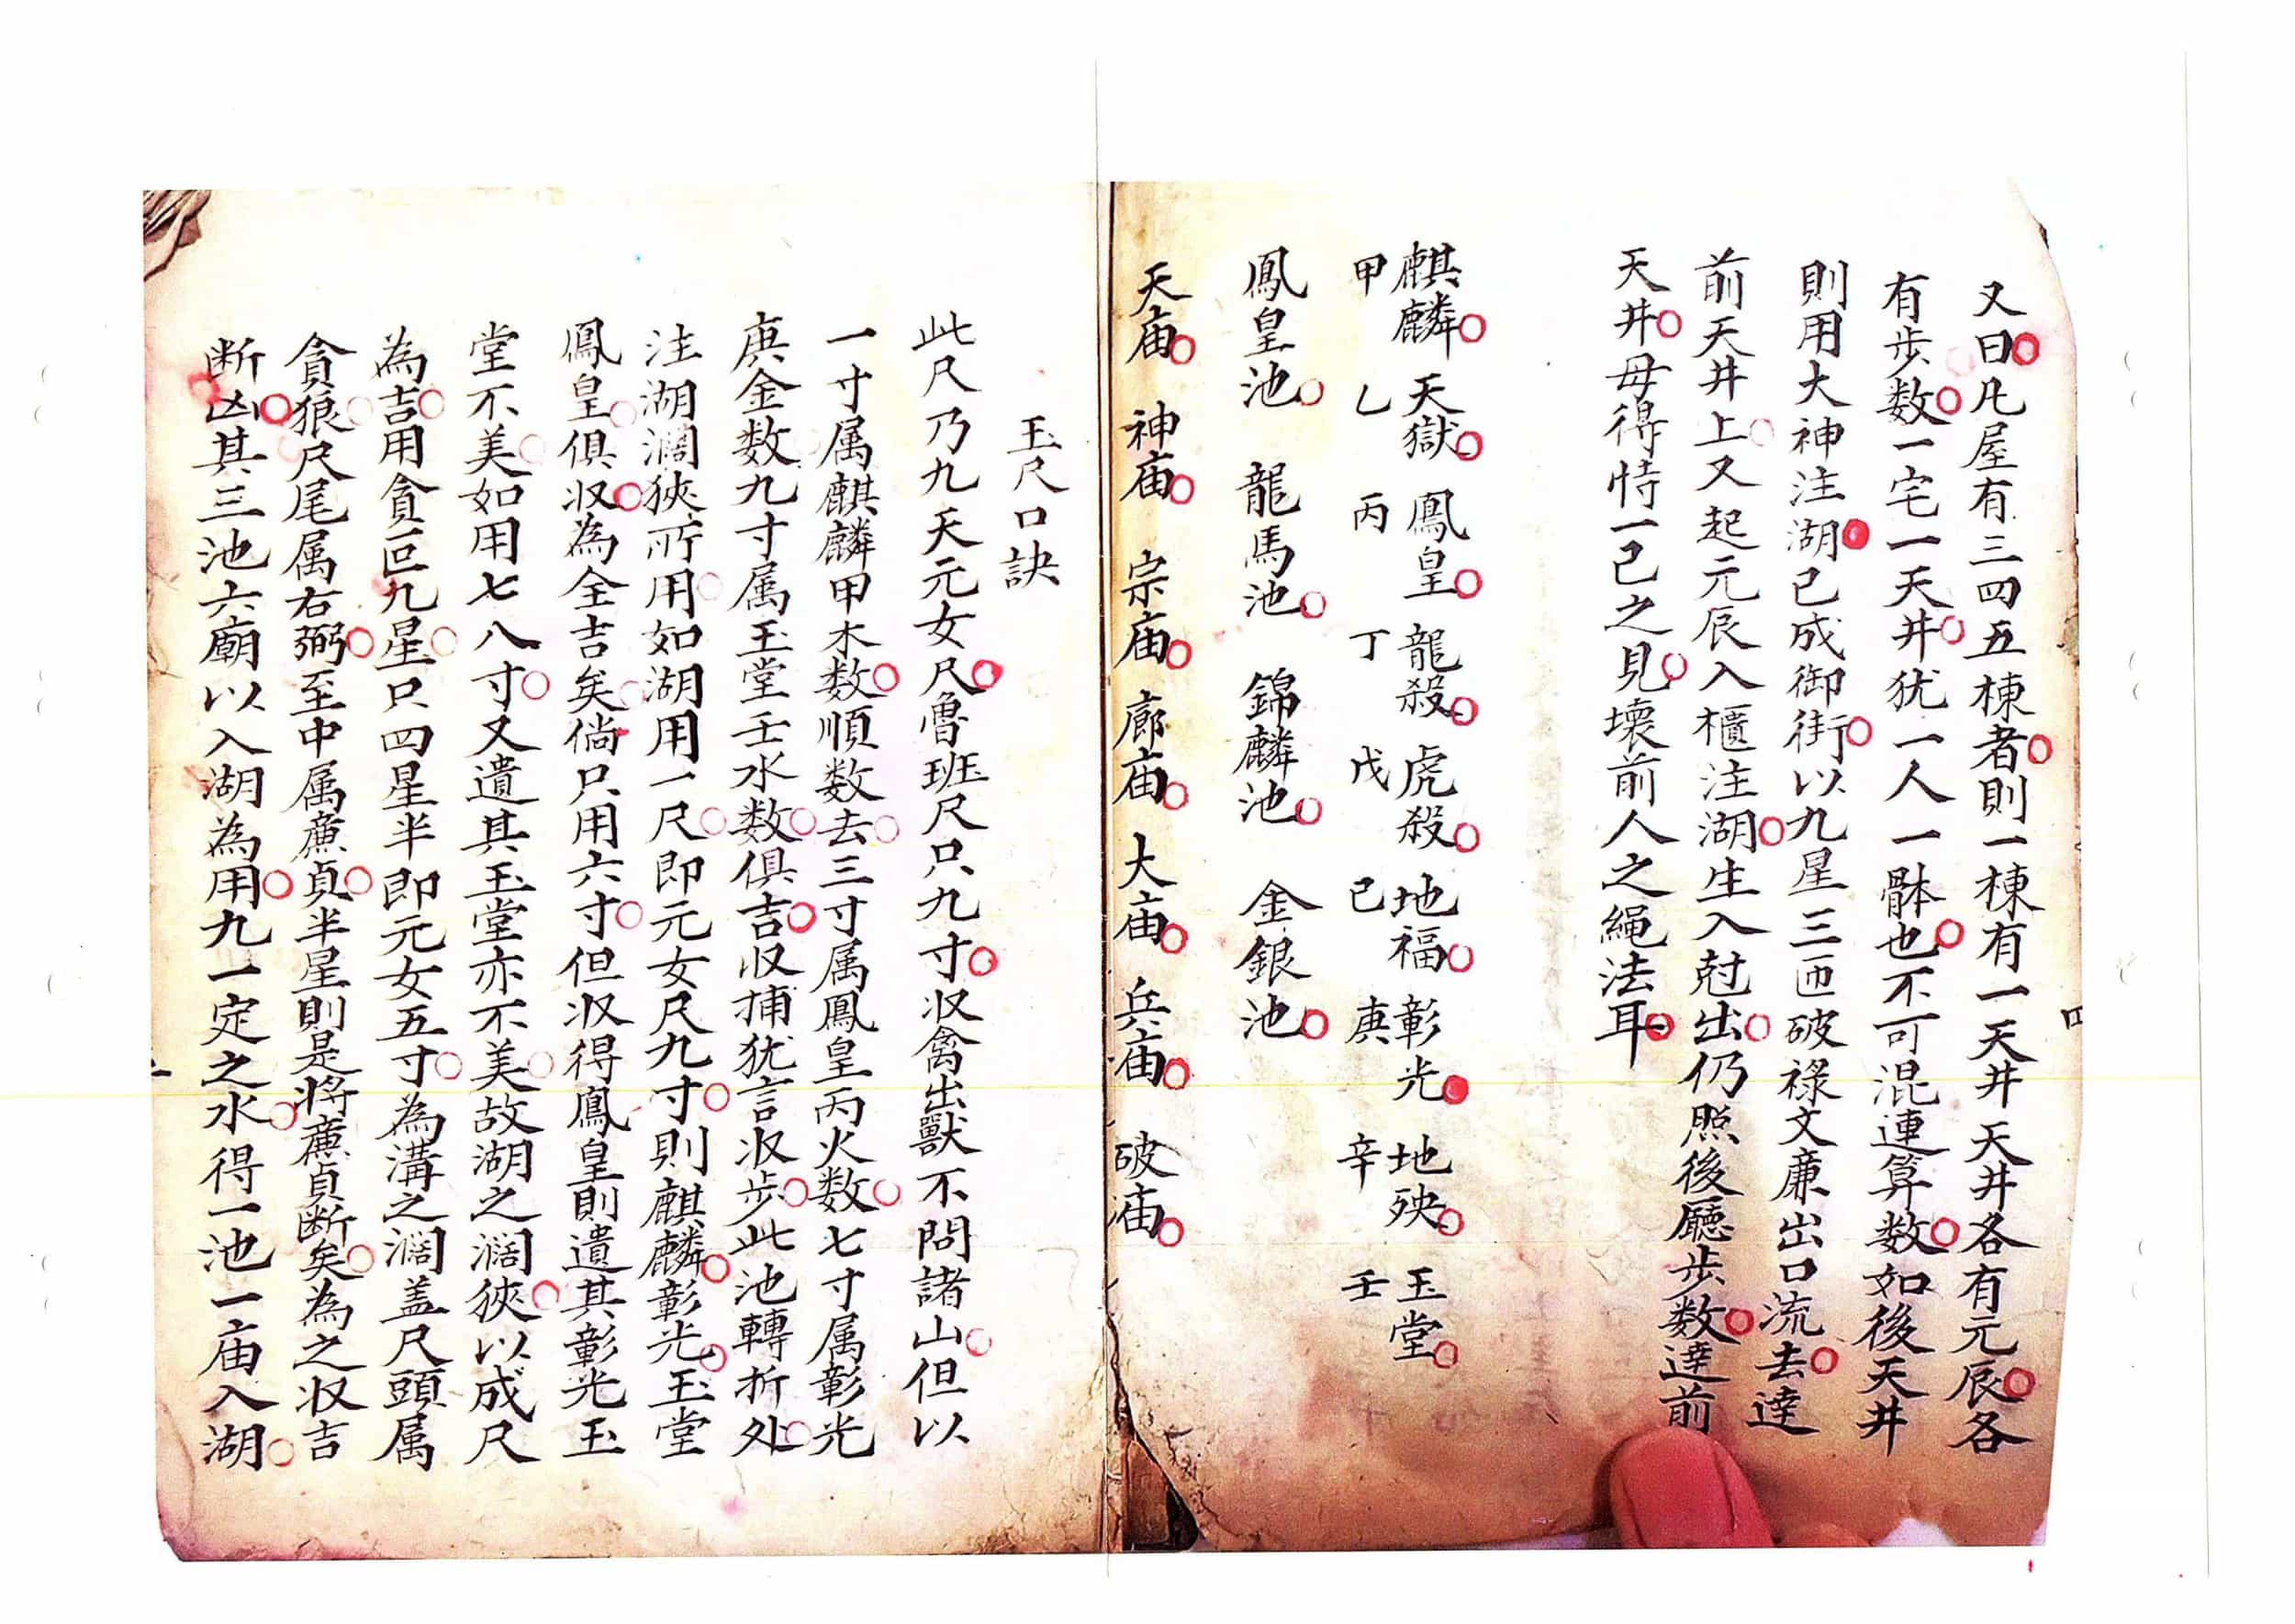 又曰凢屋有三四五棟者則一棟有一天井天井各有元辰各
有步数一宅一天井犹一人一骵也不可混連算数如後天井
則用大神注湖已成御街以九星三匝破祿文廉出口流去達
前天井上又起元辰入櫃注湖生入尅出仍照後廳步数達前
天井毋得恃一己之見壞前人之繩法耳
麒麟 天獄 鳳皇 龍殺 虎殺 地福 彰光 地殃 玉堂
甲 乙 丙 丁 戊 己 庚 辛 壬
鳳皇池 龍馬池 錦麟池 金銀池
天庙 神庙 宗庙 廊庙 大庙 兵庙 破庙
四
玉尺口訣
此尺乃九天元女尺魯班尺只九寸収禽出獸不問諸山但以
一寸属麒麟甲木数順数去三寸属鳳皇丙火数七寸属彰光
庚金数九寸属玉堂壬水数俱吉収捕犹言収步此池轉折处
注湖濶狹所用如湖用一尺即元女尺九寸則麒麟彰光玉堂
鳳皇俱収為全吉矣倘只用六寸但収得鳳皇則遺其彰光玉
堂不美如用七八寸又遺其玉堂亦不美故湖之濶狹以成尺
為吉用貪叵九星只四星半即元女五寸為溝之濶盖尺頭属
貪狼尺尾属右弼至中属廉貞半星則是將廉貞断矣為之収吉
断凶其三池六廟以入湖為用九一定之水得一池一庙入湖